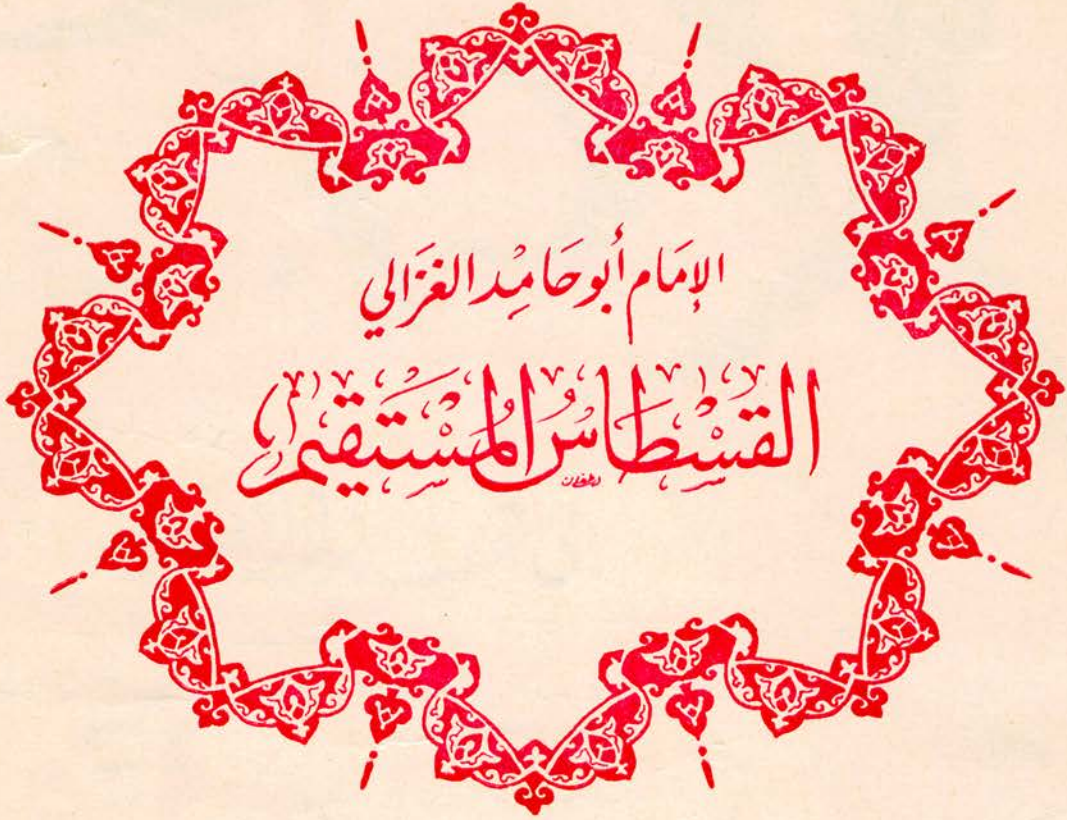 الإمَام أبو حَامِد الغزَالي
القسْطاسُ المُسْتَقيم